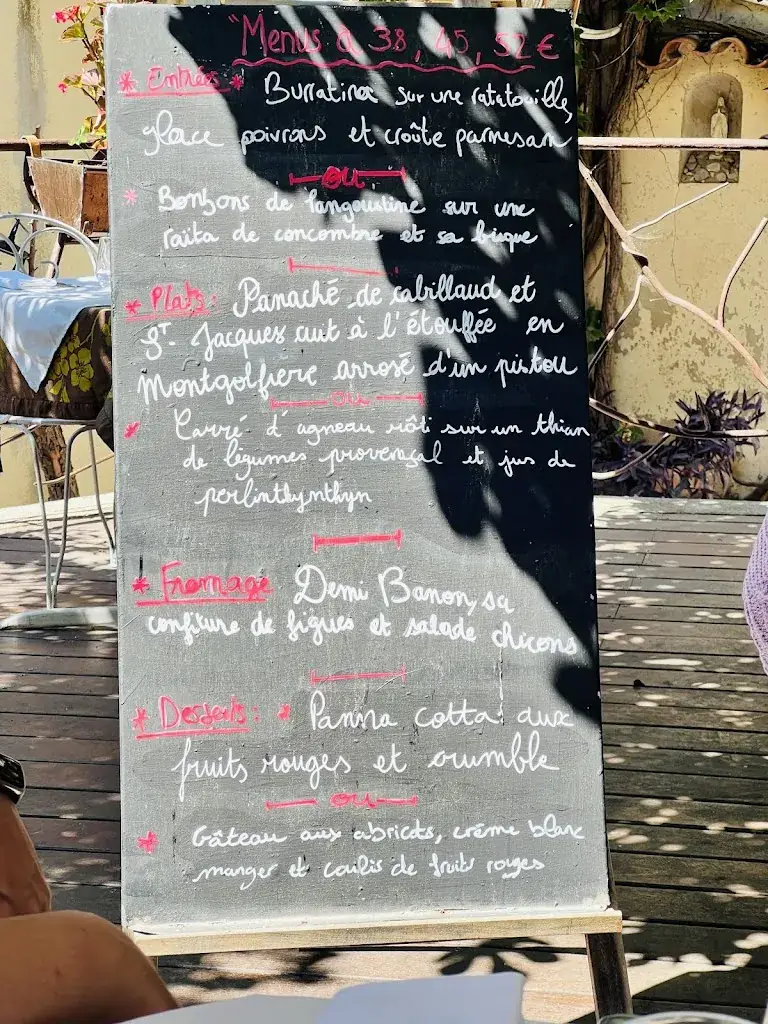 "Menus à 38, 45, 52 €
* Entrées * Burratina sur une ratatouille,
glace poivrons et croûte parmesan
ou
* Bonbons de langoustine sur une
raïta de concombre et sa bisque
* Plats: Panaché de cabillaud et
St. Jacques cuit à l'étouffée en
Montgolfiere arrosé d'un pistou
ou
* Carré d'agneau rôti sur un thian
de légumes provençal et jus de
perlinthynthyn
* Fromage Demi Banon, sa
confiture de figues et salade chicons
* Desserts: * Panna cotta aux
fruits rouges et crumble
ou
* Gâteau aux abricots, crème blanc
manger et coulis de fruits rouges